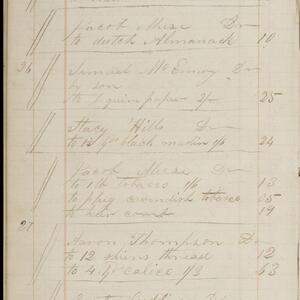 Jacob Muse Dr
to dutch Almanack 10
26
Samuel McEnvoy Dr
by son
to 1 quire paper 2/ 25
Stacy Hills Dr
to 1 yd black muslin 24
Jacob Muse Dr
to 1 lb tobacco 13
to plug cavendish tobacco 05
to comb 19
27
Aaron Thompson Dr
to 12 skeins thread 12
to 4 yd calico 1/3 63